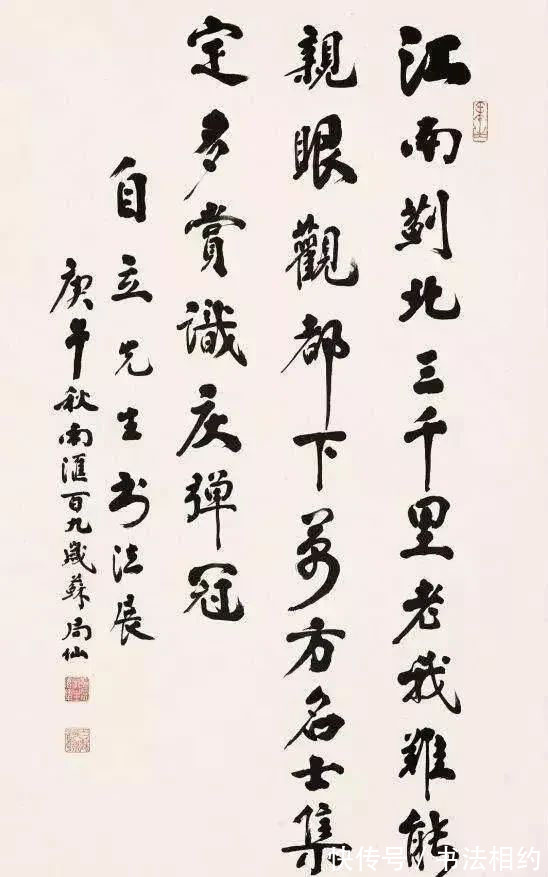 江南蓟北三千里老我難能
親眼觀都下萬方名士集
定多賞識庆弹冠
自立先生书法展
庚午秋南滙百九歲蘇局仙
快传号/书法相约